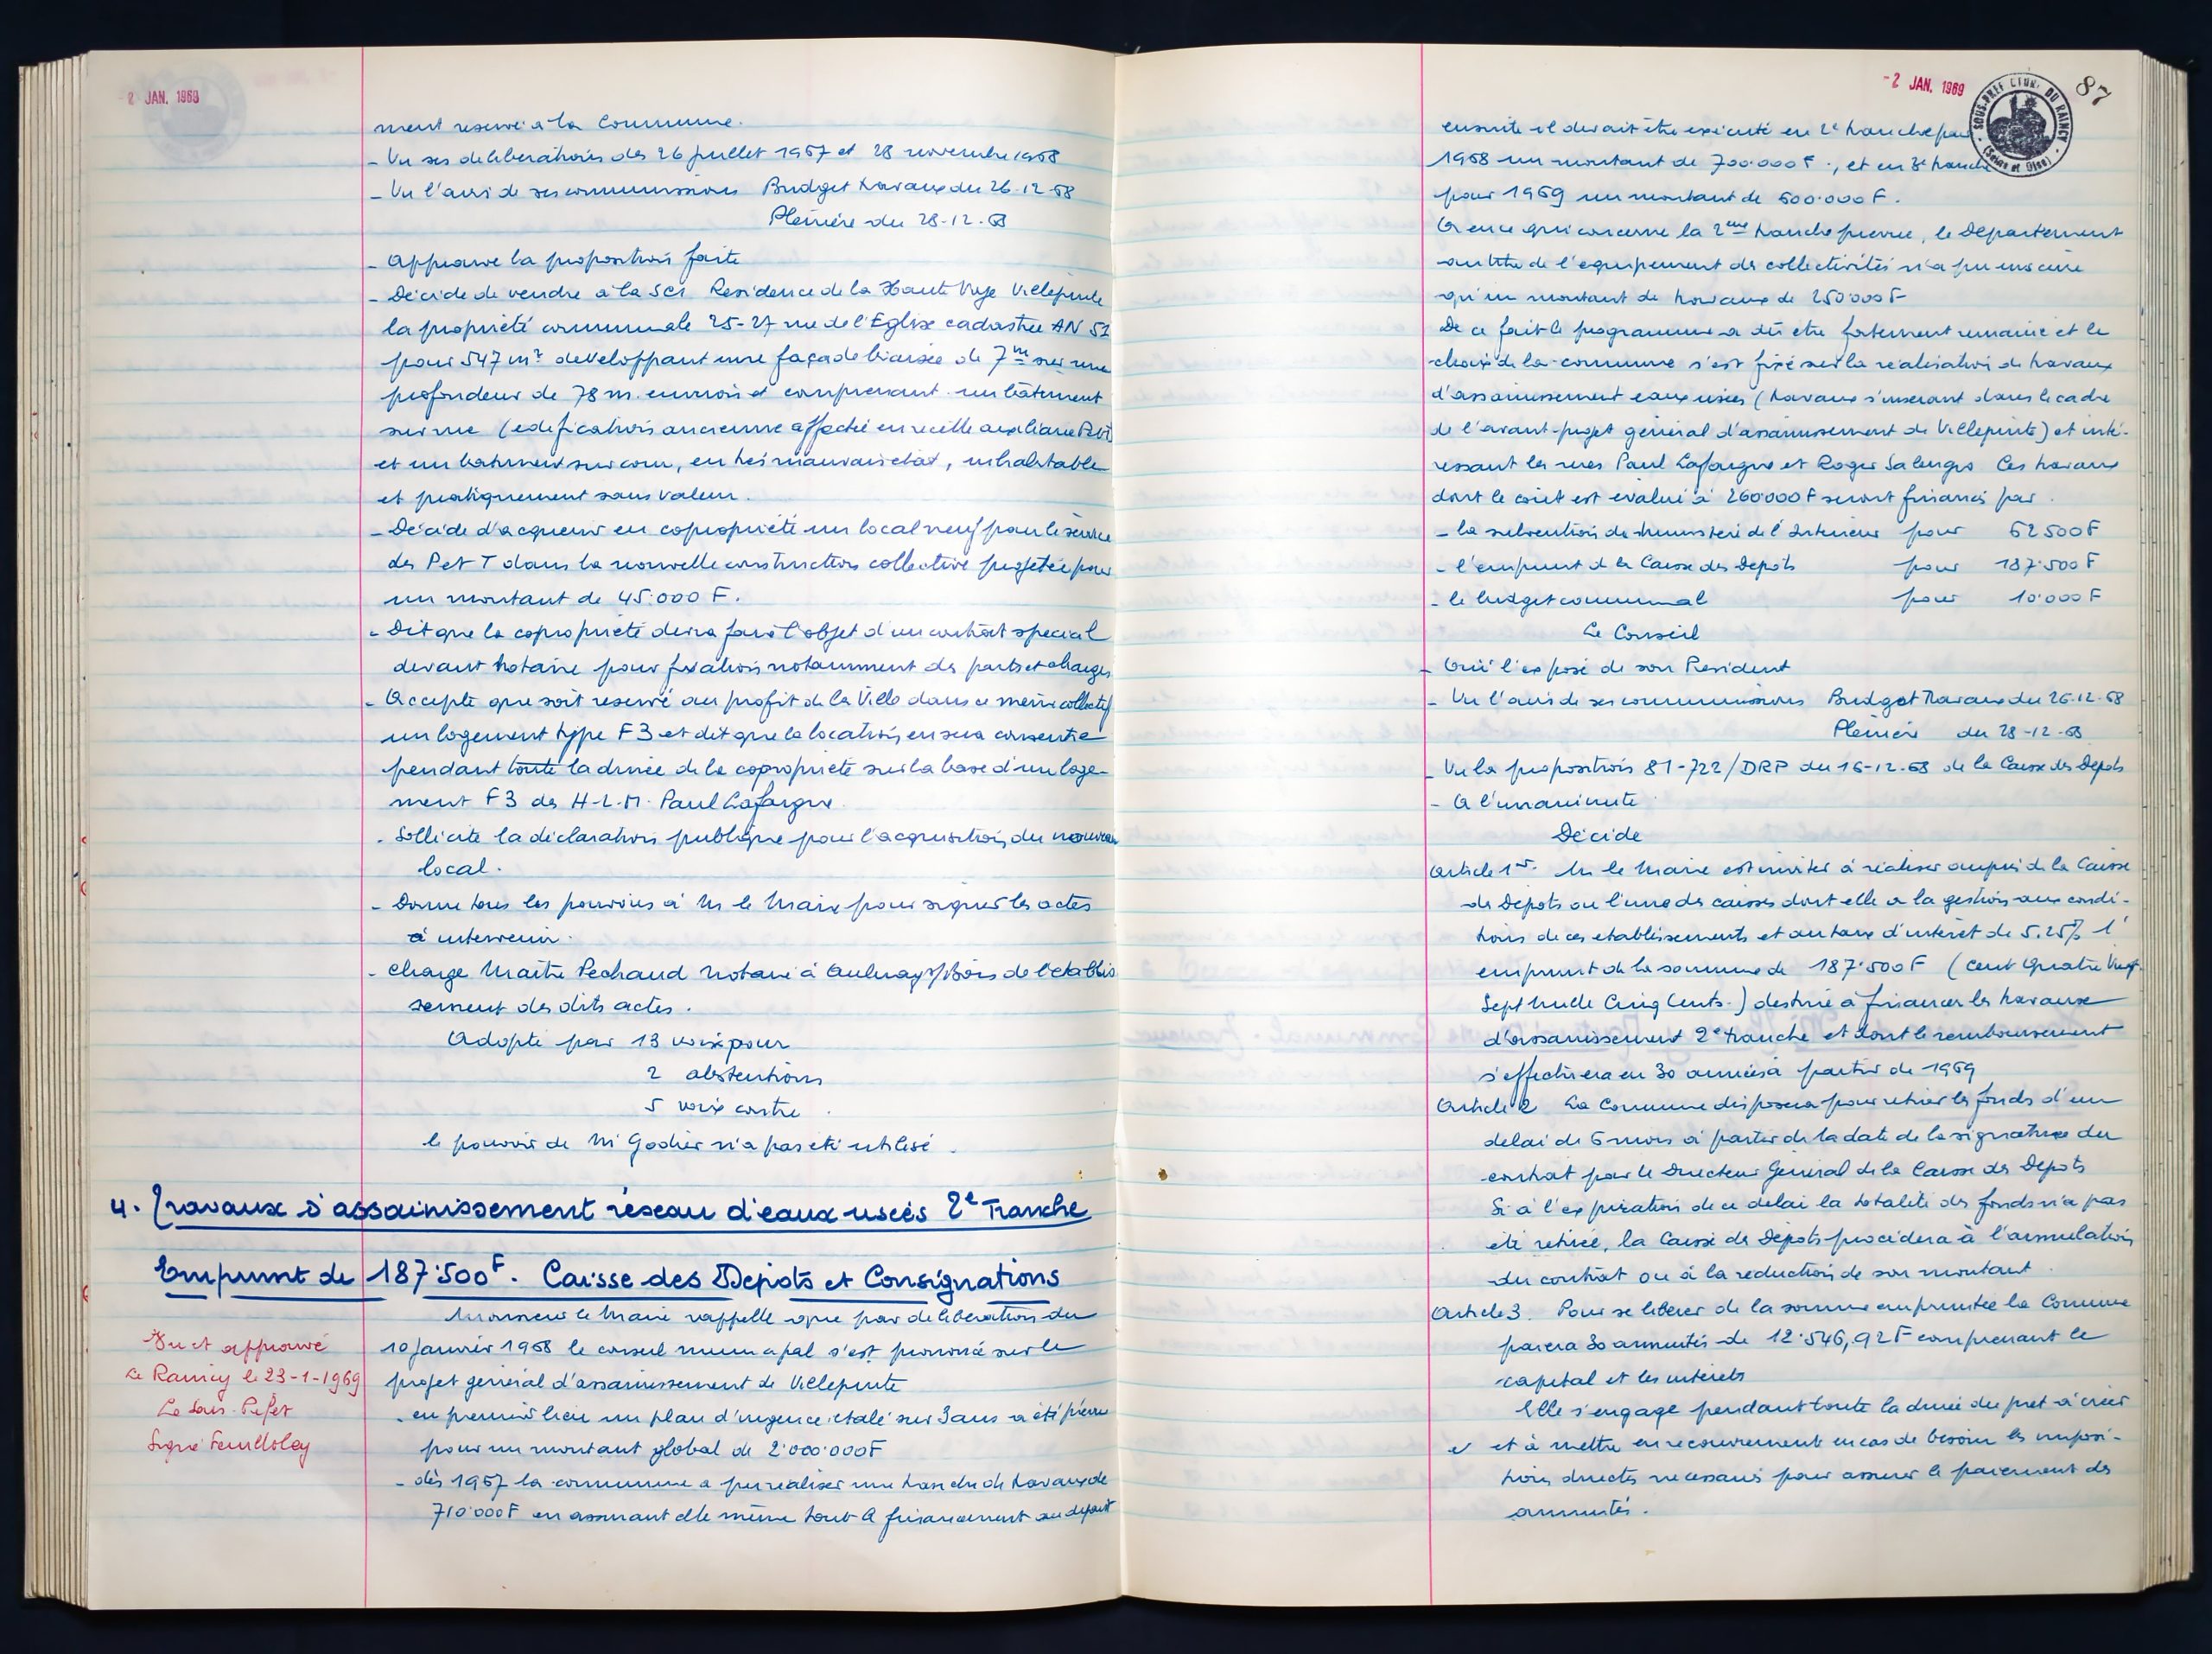 2 JAN. 1969
ment reservé à la Commune.
- Vu ses deliberations des 26 juillet 1967 et 28 novembre 1968
- Vu l'avis de ses commissions Budget travaux du 26-12-68
Plenière du 28-12-68
- Approuve la proposition faite
- Décide de vendre à la SCI Residence de la Haute Villepinte
la propriété communale 25-27 rue de l'Eglise cadastrée AN 51
pour 547 m² developpant une façade biaisée de 7m sur une
profondeur de 78 m. environ et comprenant un bâtiment
sur rue (edification ancienne affectée en recette auxiliaire
et un batiment sur cour, en très mauvais etat, inhabitable
et pratiquement sans valeur.
- Décide d'acquerir en copropriété un local neuf pour le service
des P et T dans la nouvelle construction collective projetée pour
un montant de 45.000 F.
- Dit que la copropriété devra faire l'objet d'un contrat special
devant Notaire pour fixation notamment des parts et charges
- Accepte que soit reservé au profit de la Ville dans ce même collectif
un logement type F3 et dit que la location en sera consentie
pendant toute la durée de la copropriété sur la base d'un loge-
ment F3 des H.L.M. Paul Lafargue.
- Sollicite la déclaration publique pour l'acquisition du nouveau
local.
- Donne tous les pouvoirs à M le Maire pour signer les actes
à intervenir.
- Charge Maitre Pechaud Notaire à Aulnay s/Bois de l'etablis
sement des dits actes.
Adopté par 13 voix pour
2 abstentions
5 voix contre.
le pouvoir de Mr Godier n'a pas été utilisé.
4. Travaux d'assainissement réseau d'eaux usées 2e Tranche
Emprunt de 187.500F. Caisse des Depots et Consignations
Monsieur le Maire rappelle que par deliberation du
10 janvier 1968 le conseil municipal s'est prononcé sur le
projet général d'assainissement de Villepinte
- en premier lieu un plan d'urgence etalé sur 3 ans a été prévu
pour un montant global de 2.000.000F
- dès 1967 la commune a pu realiser une tranche de travaux de
710.000F en assurant elle même tout le financement au départ
Vu et approuvé
Le Raincy le 23-1-1969
Le Sous-Préfet
Signé
-2 JAN. 1969
SOUS-PREFECTURE DU RAINCY
(Seine et Oise)
87
ensuite il devait être executé en 2e tranche pour
1968 un montant de 700.000F., et en 3e tranche
pour 1969 un montant de 600.000F.
En ce qui concerne la 2eme tranche prevue, le Departement
au titre de l'equipement des collectivités n'a pu inscrire
qu'un montant de travaux de 250.000F
De ce fait le programme a dû etre fortement remanié et le
choix de la commune s'est fixé sur la realisation de travaux
d'assainissement eaux usées (travaux s'inserant dans le cadre
de l'avant-projet général d'assainissement de Villepinte) et inté-
ressant les rues Paul Lafargue et Roger Salengro Ces travaux
dont le coût est evalué à 260.000F seront financés par.
- la subvention du ministère de l'Interieur pour 62.500F
- l'emprunt de la Caisse des Depots pour 187.500F
- le budget communal pour 10.000F
Le Conseil
- Ouï l'exposé de son President
- Vu l'avis de ses commissions Budget Travaux du 26.12.68
Plénière du 28-12-68
- Vu la proposition 81-722/DRP du 16-12-68 de la Caisse des Depots
- A l'unanimité
Décide
Article 1er. M le Maire est inviter à réaliser auprès de la Caisse
des Dépots ou l'une des caisses dont elle a la gestion aux condi-
tions de ces etablissements et au taux d'intéret de 5.25% l'
emprunt de la somme de 187.500F (Cent Quatre Vingt
Sept Mille Cinq Cents.) destiné à financer les travaux
d'assainissement 2e tranche et dont le remboursement
s'effectuera en 30 années à partir de 1969
Article 2 La Commune disposera pour retirer les fonds d'un
delai de 6 mois à partir de la date de la signature du
contrat par le Directeur Général de la Caisse des Depots
Si à l'expiration de ce delai la totalité des fonds n'a pas
été retirée, la Caisse des Dépots procédera à l'annulation
du contrat ou à la reduction de son montant.
Article 3. Pour se libérer de la somme empruntée la Commune
paiera 30 annuités de 12.546,92F comprenant le
capital et les intérets
Elle s'engage pendant toute la durée du pret à créer
et à mettre en recouvrement en cas de besoin les imposi-
tions directes necessaires pour assurer le paiement des
annuités.